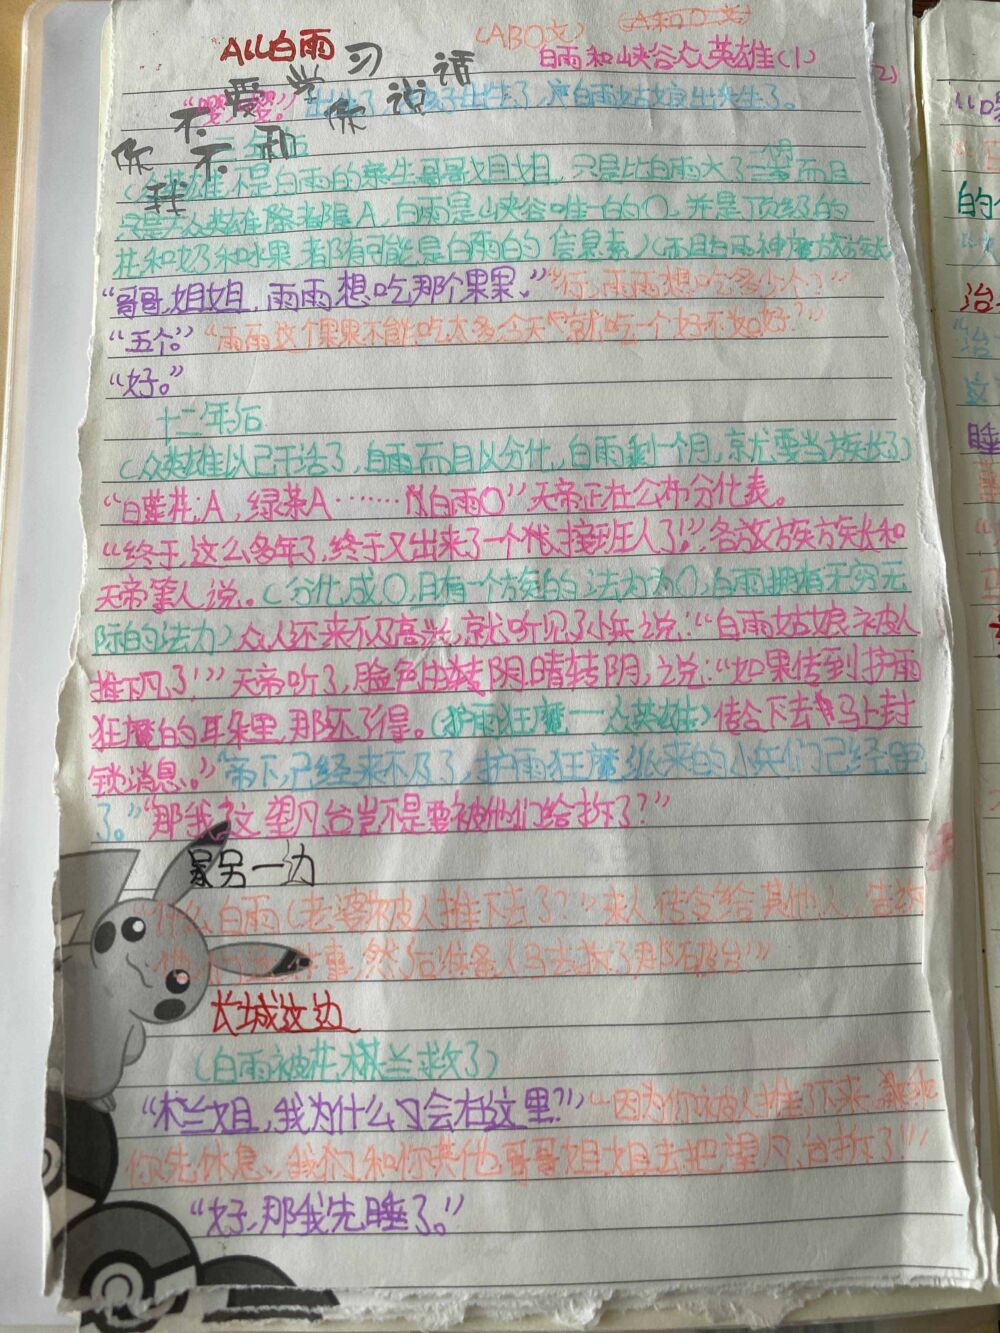 ALL白雨
（ABO文）
白雨和峡谷众英雄（1）
你不要学习
我不和你说话
“嘤，嘤。”
（众英雄不是白雨的亲生哥哥姐姐，只是比白雨大了 而且
只是众英雄除 都是A，白雨是峡谷唯一的O，并是顶级的
花和奶和水果 都有可能是白雨的信息素）
“哥哥，姐姐，雨雨想吃那个果果。”“行，雨雨想吃多少个？”
“五个。”“雨雨这个果果不能吃太多今天就吃一个好不好？”
“好。”
十二年后
（众英雄以已干活了，白雨而且以分化，白雨剩一个月，京尤要当族长了）
“白莲花：A，绿茶A……白雨O”天帝正在公布分化表。
“终于，这么多年了，终于又出来了一个代接班人了！”，各族族长和
天帝等人说。（分化成O，且有一个族的法力为O，白雨拥有无穷无
际的法力）众人还来不及高兴，就听见了小兵说：“白雨姑娘被人
推下凡了！”天帝听了，脸色由转阴晴转阴，说：“如果传到护雨
狂魔的耳朵里，那还了得。（护雨狂魔——众英雄）传令下去马上封
锁消息。”“帝下，已经来不及了，护雨狂魔派来的小兵们已经
了。”“那我这望凡台岂不是要被他们给拆了？”
另一边
什么白雨（老婆被人推下去了？”来人传令给其他人，告诉
他们 件事，然后准备人马去拆了那 台”
长城这边
（白雨被花木兰救了）
“木兰姐，我为什么会在这里？”“因为你被人推下来，
你先休息，我们和你其他哥哥姐姐去把望凡台拆了！”
“好，那我先睡了。”
“
的
治
“治
这
睡